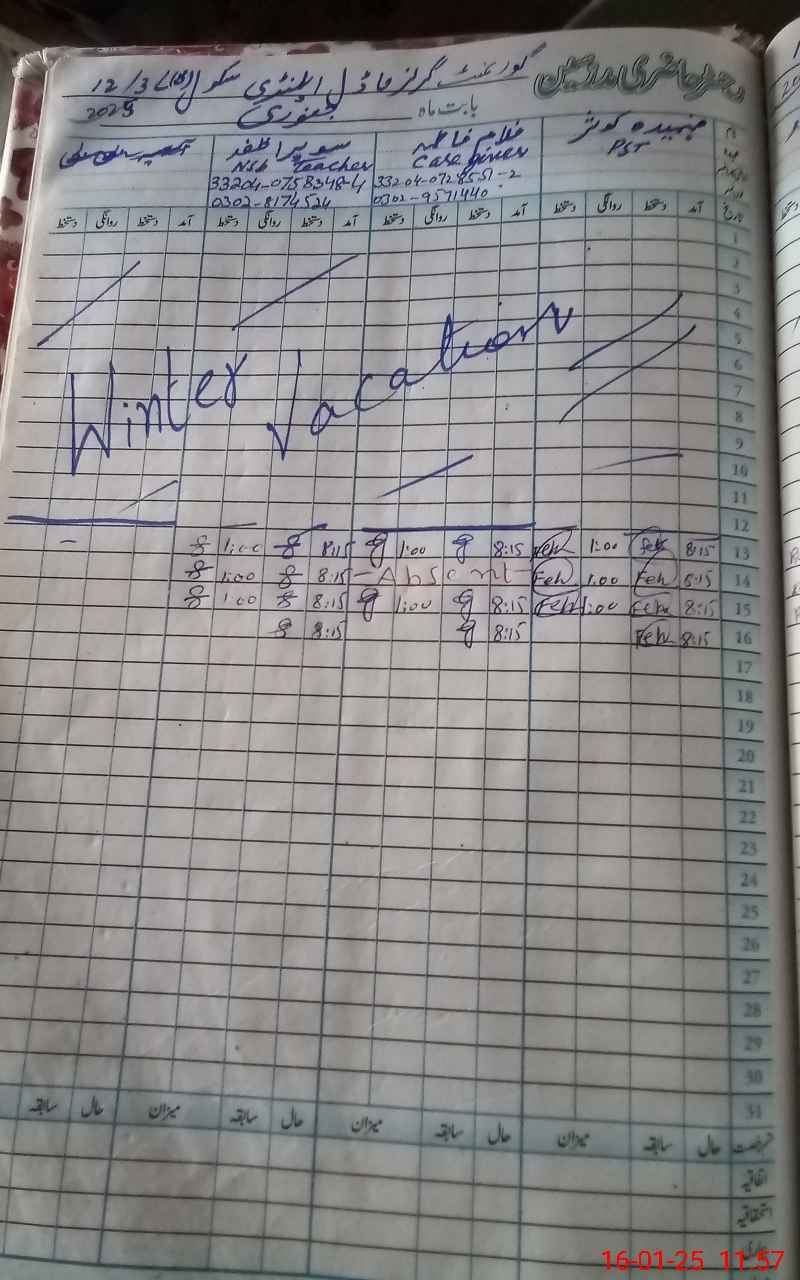 دفتر حاضری مدرسین گورنمنٹ گرلز ماڈل ایلمنٹری سکول 12/3L
بابت ماہ جنوری 2025
فہمیدہ کوثر غلام فاطمہ سویرا ظفر
PST Care giver NSB Teacher
33204-0728551-2 33204-0758348-4
0302-9571440 0302-8174524
تاریخ آمد دستخط روانگی دستخط آمد دستخط روانگی دستخط آمد دستخط روانگی دستخط آمد دستخط روانگی دستخط
1
2
3
4
5
6
7
8
9
10
11
Winter Vacation
12
13 8:15 Feh 1:00 Feh 8:15 1:00 8:15 1:00 -
14 8:15 Feh 1:00 Feh -Absent- 8:15 1:00
15 8:15 Feh 1:00 Feh 8:15 1:00 8:15 1:00
16 8:15 Feh 8:15 8:15
17
18
19
20
21
22
23
24
25
26
27
28
29
30
31
رخصت حال سابقہ میزان حال سابقہ میزان حال سابقہ میزان حال سابقہ
اتفاقیہ
استحقاقیہ
بیماری
16-01-25 11:57